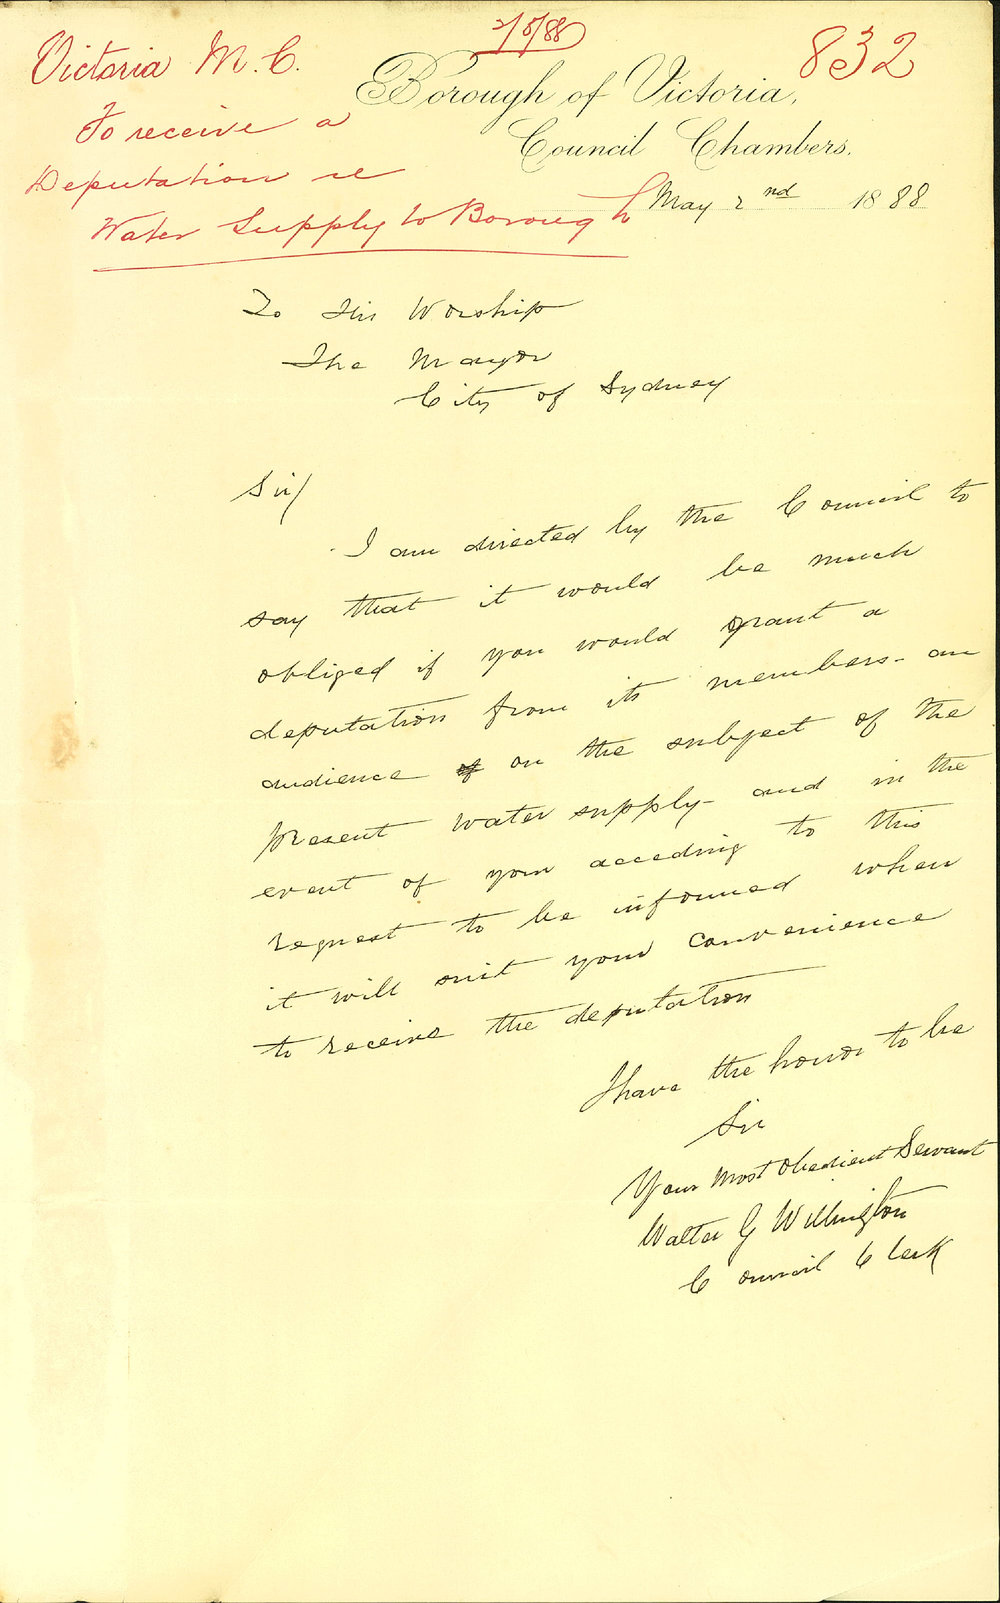 2/5/88
832
Victoria M. C.
To receive a
Deputation re
Water Supply to Borough
Borough of Victoria,
Council Chambers.
May 2nd 1888
To His Worship
The Mayor
City of Sydney
Sir/
I am directed by the Council to
say that it would be much
obliged if you would grant a
deputation from its members - an
audience of on the subject of the
present water supply - and in the
event of your acceding to this
request to be informed when
it will suit your convenience
to receive the deputation
I have the honor to be
Sir
Your Most Obedient Servant
Walter G Willington
Council Clerk